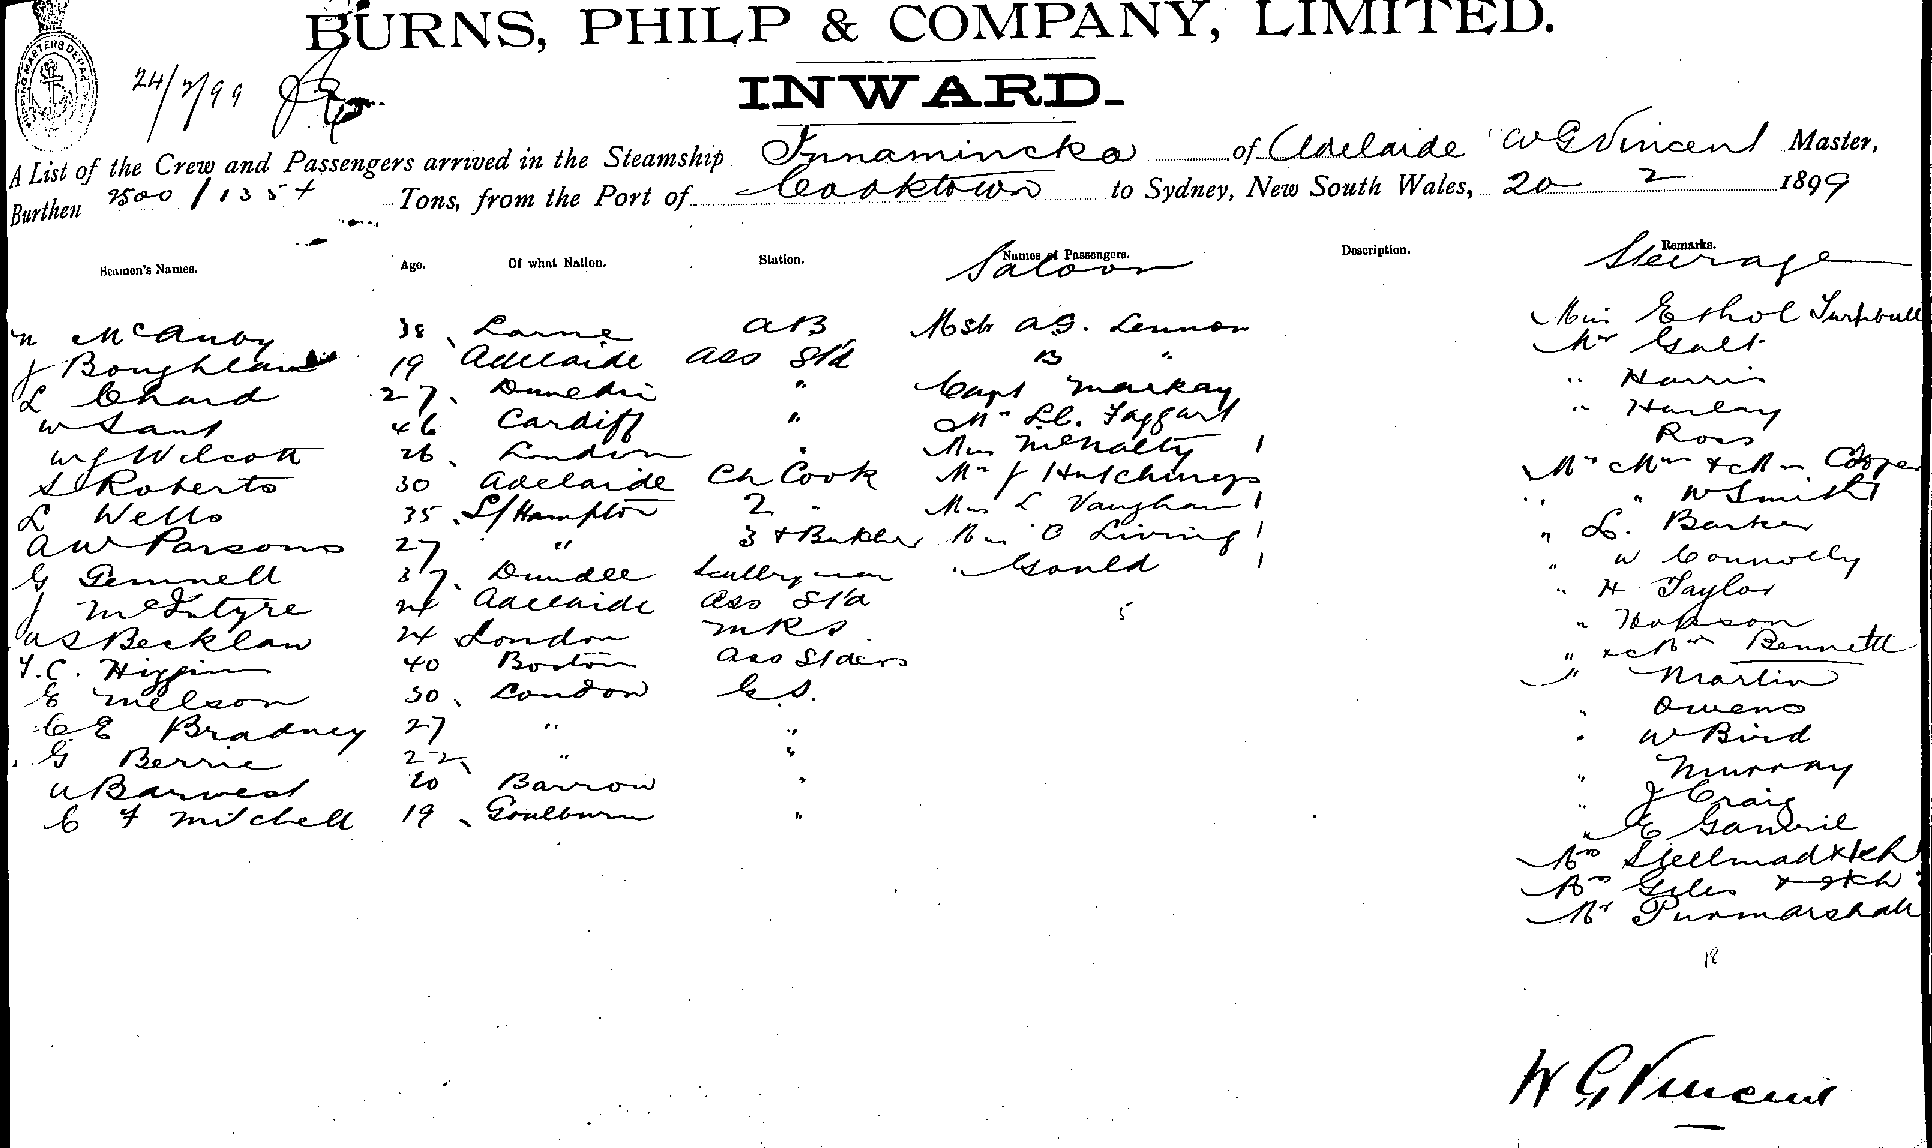 BURNS, PHILP & COMPANY, LIMITED.
24/2/99
INWARD.
A List of the Crew and Passengers arrived in the Steamship Innamincka of Adelaide W G Vincent Master,
Burthen 2500 / 1354 Tons, from the Port of Cooktown to Sydney, New South Wales, 20 2 1899
Seamen's Names. Age. Of what Nation. Station. Names of Passengers. Description. Remarks.
Saloon Steerage
McAuby 38 Larne AB Mstr A G. Lennon Miss Ethol Turnbull
J Boughlan 19 Adelaide Ass Std B " Mr Galt
L Chard 27 Dunedin " Capt Mackay " Harris
W Sant 46 Cardiff " Mr Taggart " Harley
W J Wilcott 26 London " Miss McNalty 1 Ross
S Roberts 30 Adelaide Ch Cook Mr J Hutchings Mr & Mrs Cooper
L Wells 35 S/Hampton 2 " L Vaughan 1 " " W Smith
A W Parsons 27 " 3 & Butcher C Living 1 " L. Barker
G Gemnell 37 Dundee Scullery man " Gould 1 " W Connolly
J McIntyre Adelaide Ass Std 5 " H Taylor
W S Becklaw 24 London MRS " Hobson
T. C. Higgin 40 Boston Ass Stders " & Bennett
E Melson 30 London G S. " Martin
C E Bradney 27 " " " Owens
G Berrie 22 " " " W Bird
W Barwest 20 Barrow " " Murray
C F Mitchell 19 Goulburn " " J Craig
" E
Mrs & 1 ch
Mrs Giles & 2 ch
Mr Purmarshall
18
W G Vincent